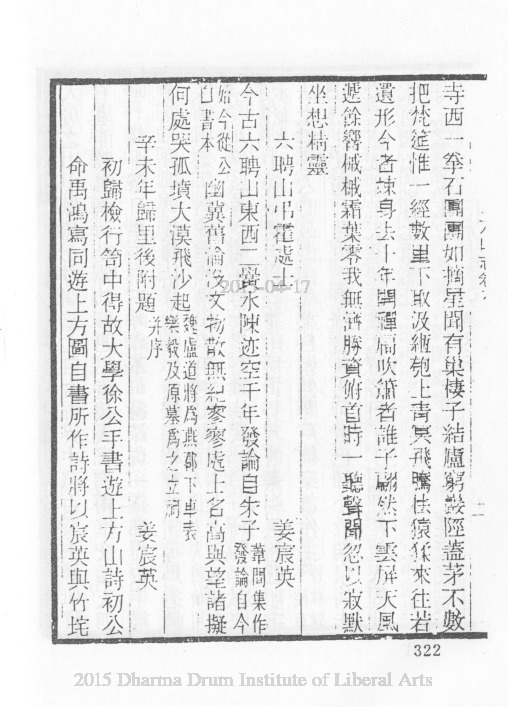 寺西一拳石團團如摘星聞有巢棲子結廬窮巖陘蓋茅不數
把梵筵惟一經數里下取汲缾匏上靑冥飛騰怯猿狖來往若
遺形今者捷身去十年閉禪扃吹簫者誰子翩然下雲屏天風
遞餘響槭槭霜葉零我無濟勝資俯首時一聽聲聞忽以寂默
坐想精靈
六聘山弔霍處士
姜宸英
今古六聘山東西二
水陳迹空千年發論自朱子
葦間集作
發論自今
始今從公
自書本
幽冀舊淪没文物散無紀寥寥處士名高與望諸擬
何處哭孤墳大漠飛沙起
魏盧道將爲燕郡下車表
樂毅及原墓爲之立祠
辛未年歸里後附題
并序
姜宸英
初歸檢行笥中得故大學徐公手書遊上方山詩初公
命禹鴻寫同遊上方圖自書所作詩將以宸英與竹垞
322
2015 Dharma Drum Institute of Liberal Arts